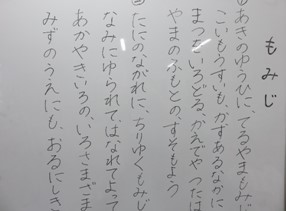 もみじ
①あきのゆうひに、てるやまもみじ
こいもうすいも、かずあるなかに
まつをいろどる、かえでやつたは
やまのふもとの、すそもよう
②たにのながれに、ちりゆくもみじ
なみにゆられて、はなれてよって
あかやきいろの、いろさまざま
みずのうえにも、おるにしき